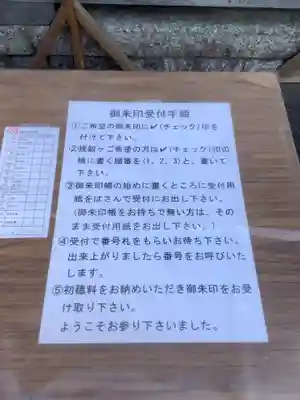 御朱印受付手順
①ご希望の御朱印に✔(チェック)印を
付けて下さい。
②複数ヶご希望の方は✔(チェック)印の
横に書く順番を(1, 2, 3)と、書いて
下さい。
③御朱印帳の始めに書くところに受付用
紙をはさんで受付にお出し下さい。
(御朱印帳をお持ちで無い方は、その
まま受付用紙をお出し下さい。)
④受付で番号札をもらいお待ち下さい。
出来上がりましたら番号をお呼びいた
します。
⑤初穂料をお納めいただき御朱印をお受
け取り下さい。
ようこそお参り下さいました。